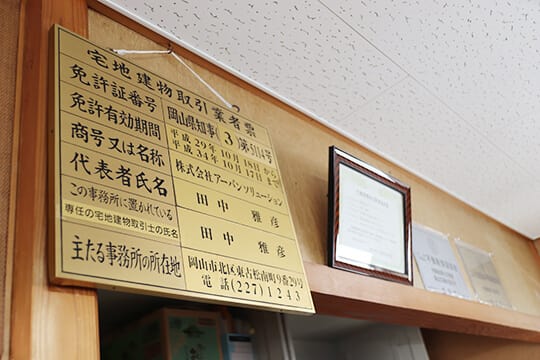 宅地建物取引業者票
免許証番号 岡山県知事(3)第5114号
免許有効期間 平成29年10月18日から
平成34年10月17日まで
商号又は名称 株式会社アーバンソリューション
代表者氏名 田中 雅彦
この事務所に置かれている
専任の宅地建物取引士の氏名 田中 雅彦
主たる事務所の所在地 岡山市北区東古松南町9番29号
電話(227)1243